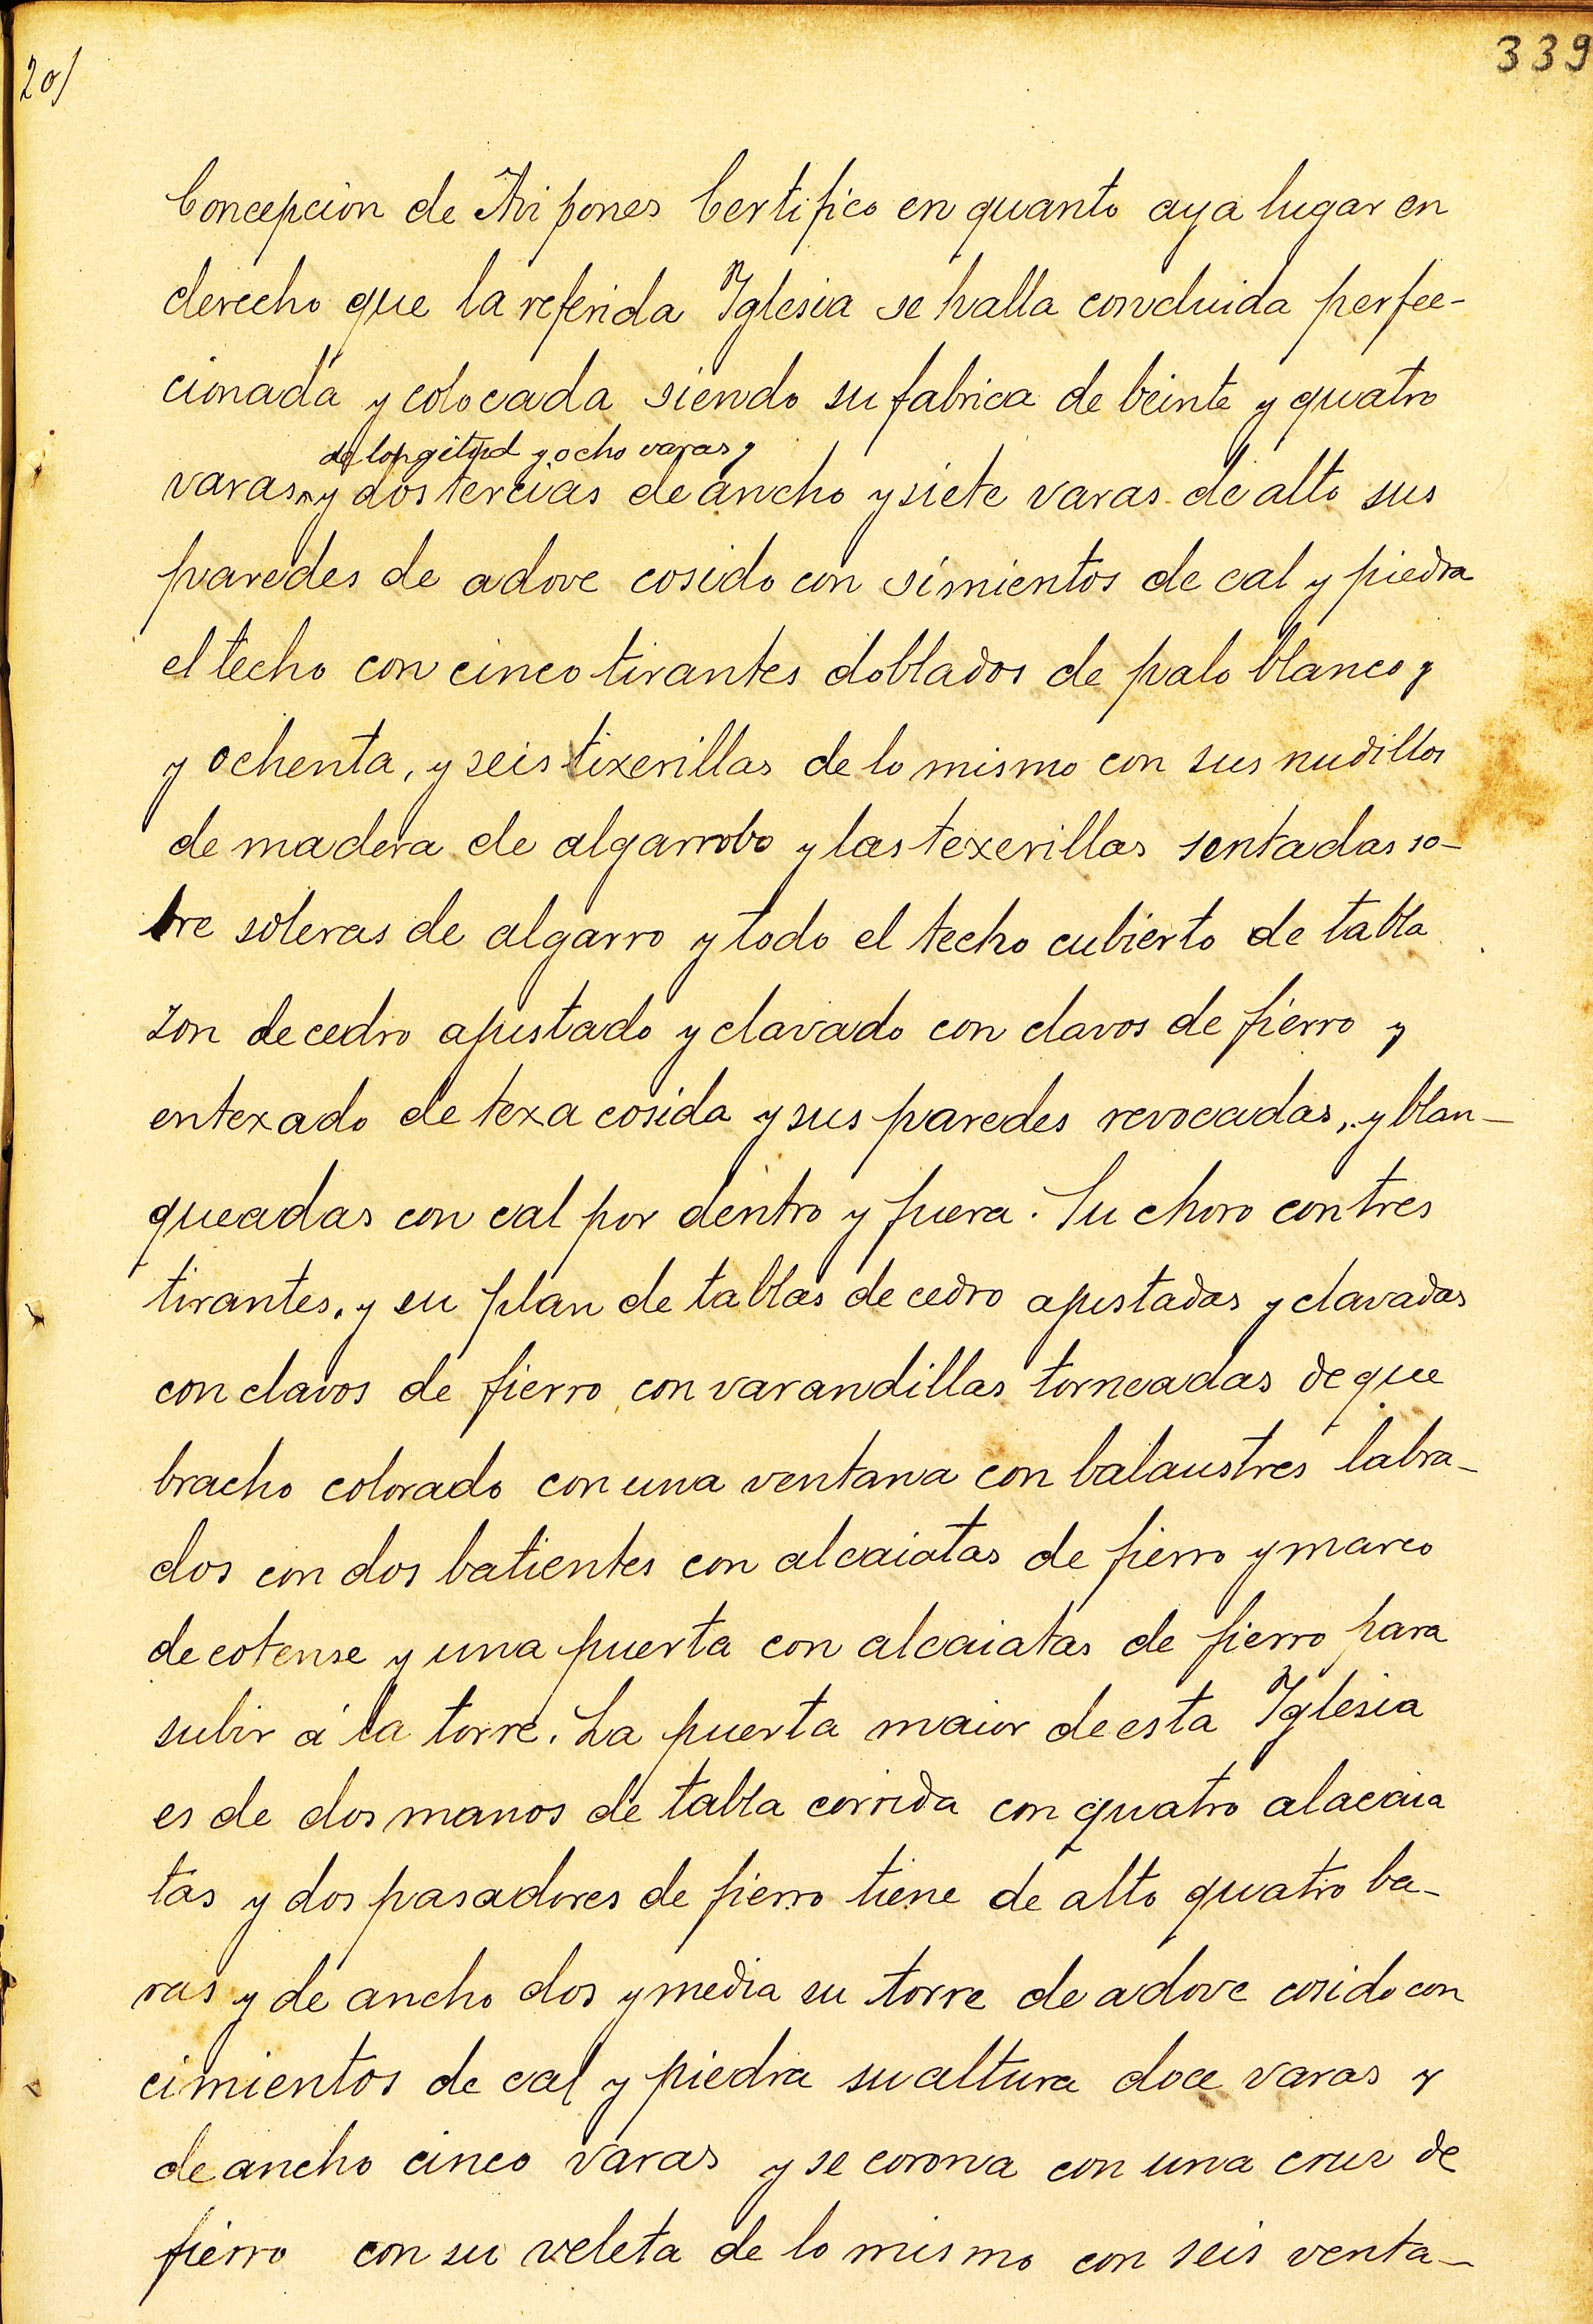 20/
339
Concepcion de Avipones Certifico en quanto aya lugar en
derecho que la referida Iglesia se halla concluida perfec-
cionada y colocada siendo su fabrica de beinte y quatro
de longitud y ocho varas y
varas y dos tercias de ancho y siete varas de alto sus
paredes de adove cosido con simientos de cal y piedra
el techo con cinco tirantes doblados de palo blanco y
y ochenta, y seis tixerillas de lo mismo con sus nudillos
de madera de algarrobo y las texerillas sentadas so-
bre soleras de algarro y todo el techo cubierto de tabla
zon de cedro ajustado y clavado con clavos de fierro y
entexado de texa cosida y sus paredes revocadas, y blan-
queadas con cal por dentro y fuera. Su choro con tres
tirantes, y su plan de tablas de cedro ajustadas y clavadas
con clavos de fierro con varandillas torneadas de que
bracho colorado con una ventana con balaustres labra-
dos con dos batientes con alcaiatas de fierro y marco
de cotense y una puerta con alcaiatas de fierro para
subir á la torre. La puerta maior de esta Iglesia
es de dos manos de tabla corrida con quatro alacaia
tas y dos pasadores de fierro tiene de alto quatro ba-
ras y de ancho dos y media su torre de adove cosido con
cimientos de cal y piedra su altura doce varas y
de ancho cinco varas y se corona con una cruz de
fierro con su veleta de lo mismo con seis venta-